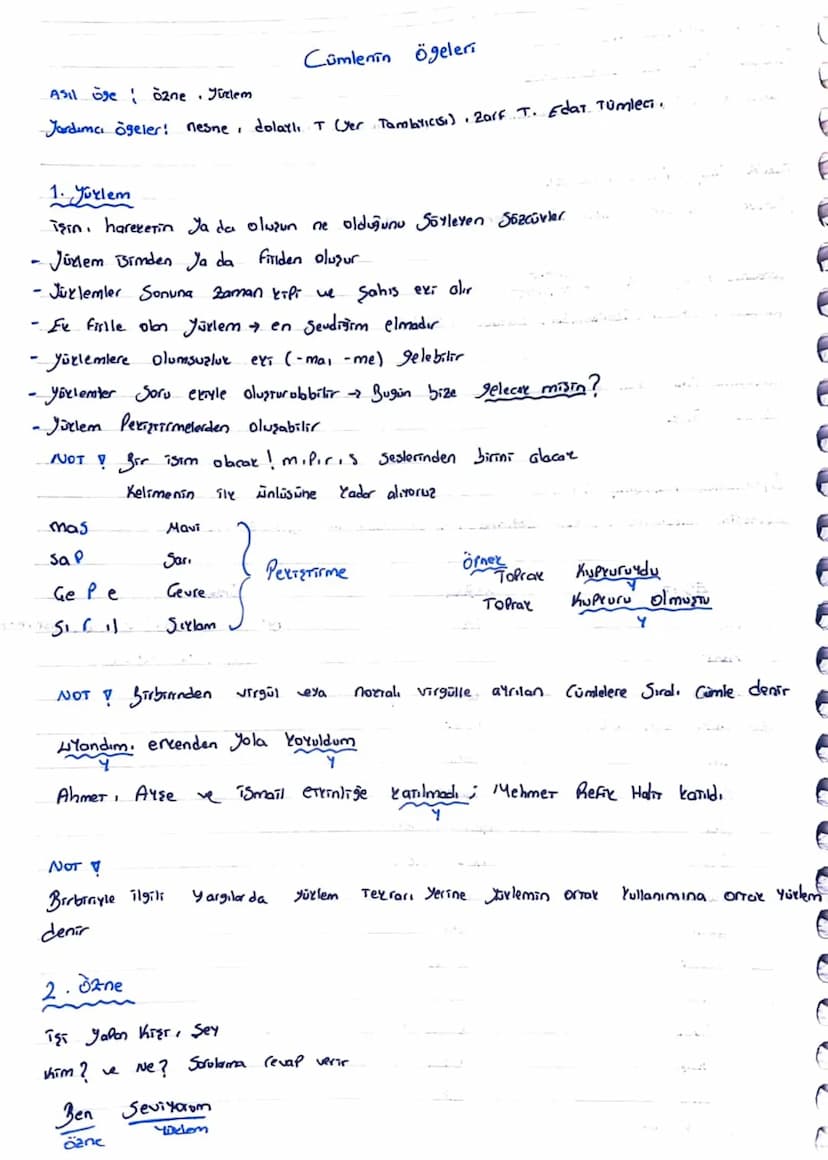 Cümlenin Ögeleri
Asıl öge : özne, yüklem
Yardımcı ögeler: nesne, dolaylı T (Yer Tamlayıcısı), Zarf T. Edat Tümleci.
1. Yüklem
işin, hareketin ya da oluşun ne olduğunu söyleyen sözcükler
- Yüklem isimden ya da fiilden oluşur
- Yüklemler sonuna zaman kipi ve şahıs eki alır
- Ek fiille olan yüklem → en sevdiğim elmadır
- Yüklemlere olumsuzluk eki (-ma, -me) gelebilir
- Yüklemler soru ekiyle oluşturulabilir → Bugün bize gelecek misin?
- Yüklem Pekiştirmelerden oluşabilir
NOT ! Bir isim olacak! m.p.r.s seslerinden birini alacak
Kelimenin ilk ünlüsüne kadar alıyoruz
mas Mavi
sap Sarı
Ge P e Gevre
Sı r ıl Sıklam
Pekiştirme
Örnek
Toprak Kupkuruydu
Y
Toprak Kupkuru olmuştu
Y
NOT ! Birbirinden virgül veya noktalı virgülle ayrılan Cümlelere Sıralı Cümle denir
Uyandım, erkenden yola koyuldum
Y Y
Ahmet, Ayşe ve İsmail etkinliğe katılmadı ; Mehmet Refik Halit katıldı.
Y
NOT !
Birbiriyle ilgili yargılarda yüklem Tekrarı yerine yüklemin ortak kullanımına ortak yüklem
denir
2. Özne
işi yapan kişi, şey
Kim? ve Ne? Sorularına cevap verir
Ben Seviyorum
özne yüklem